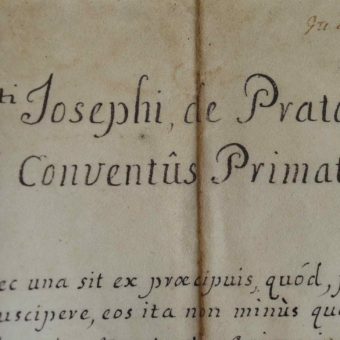 ti Josephi, de Prato
Conventûs Primat
ec una sit ex præcipuis, quód,
uscipere, eos ita non minùs qu